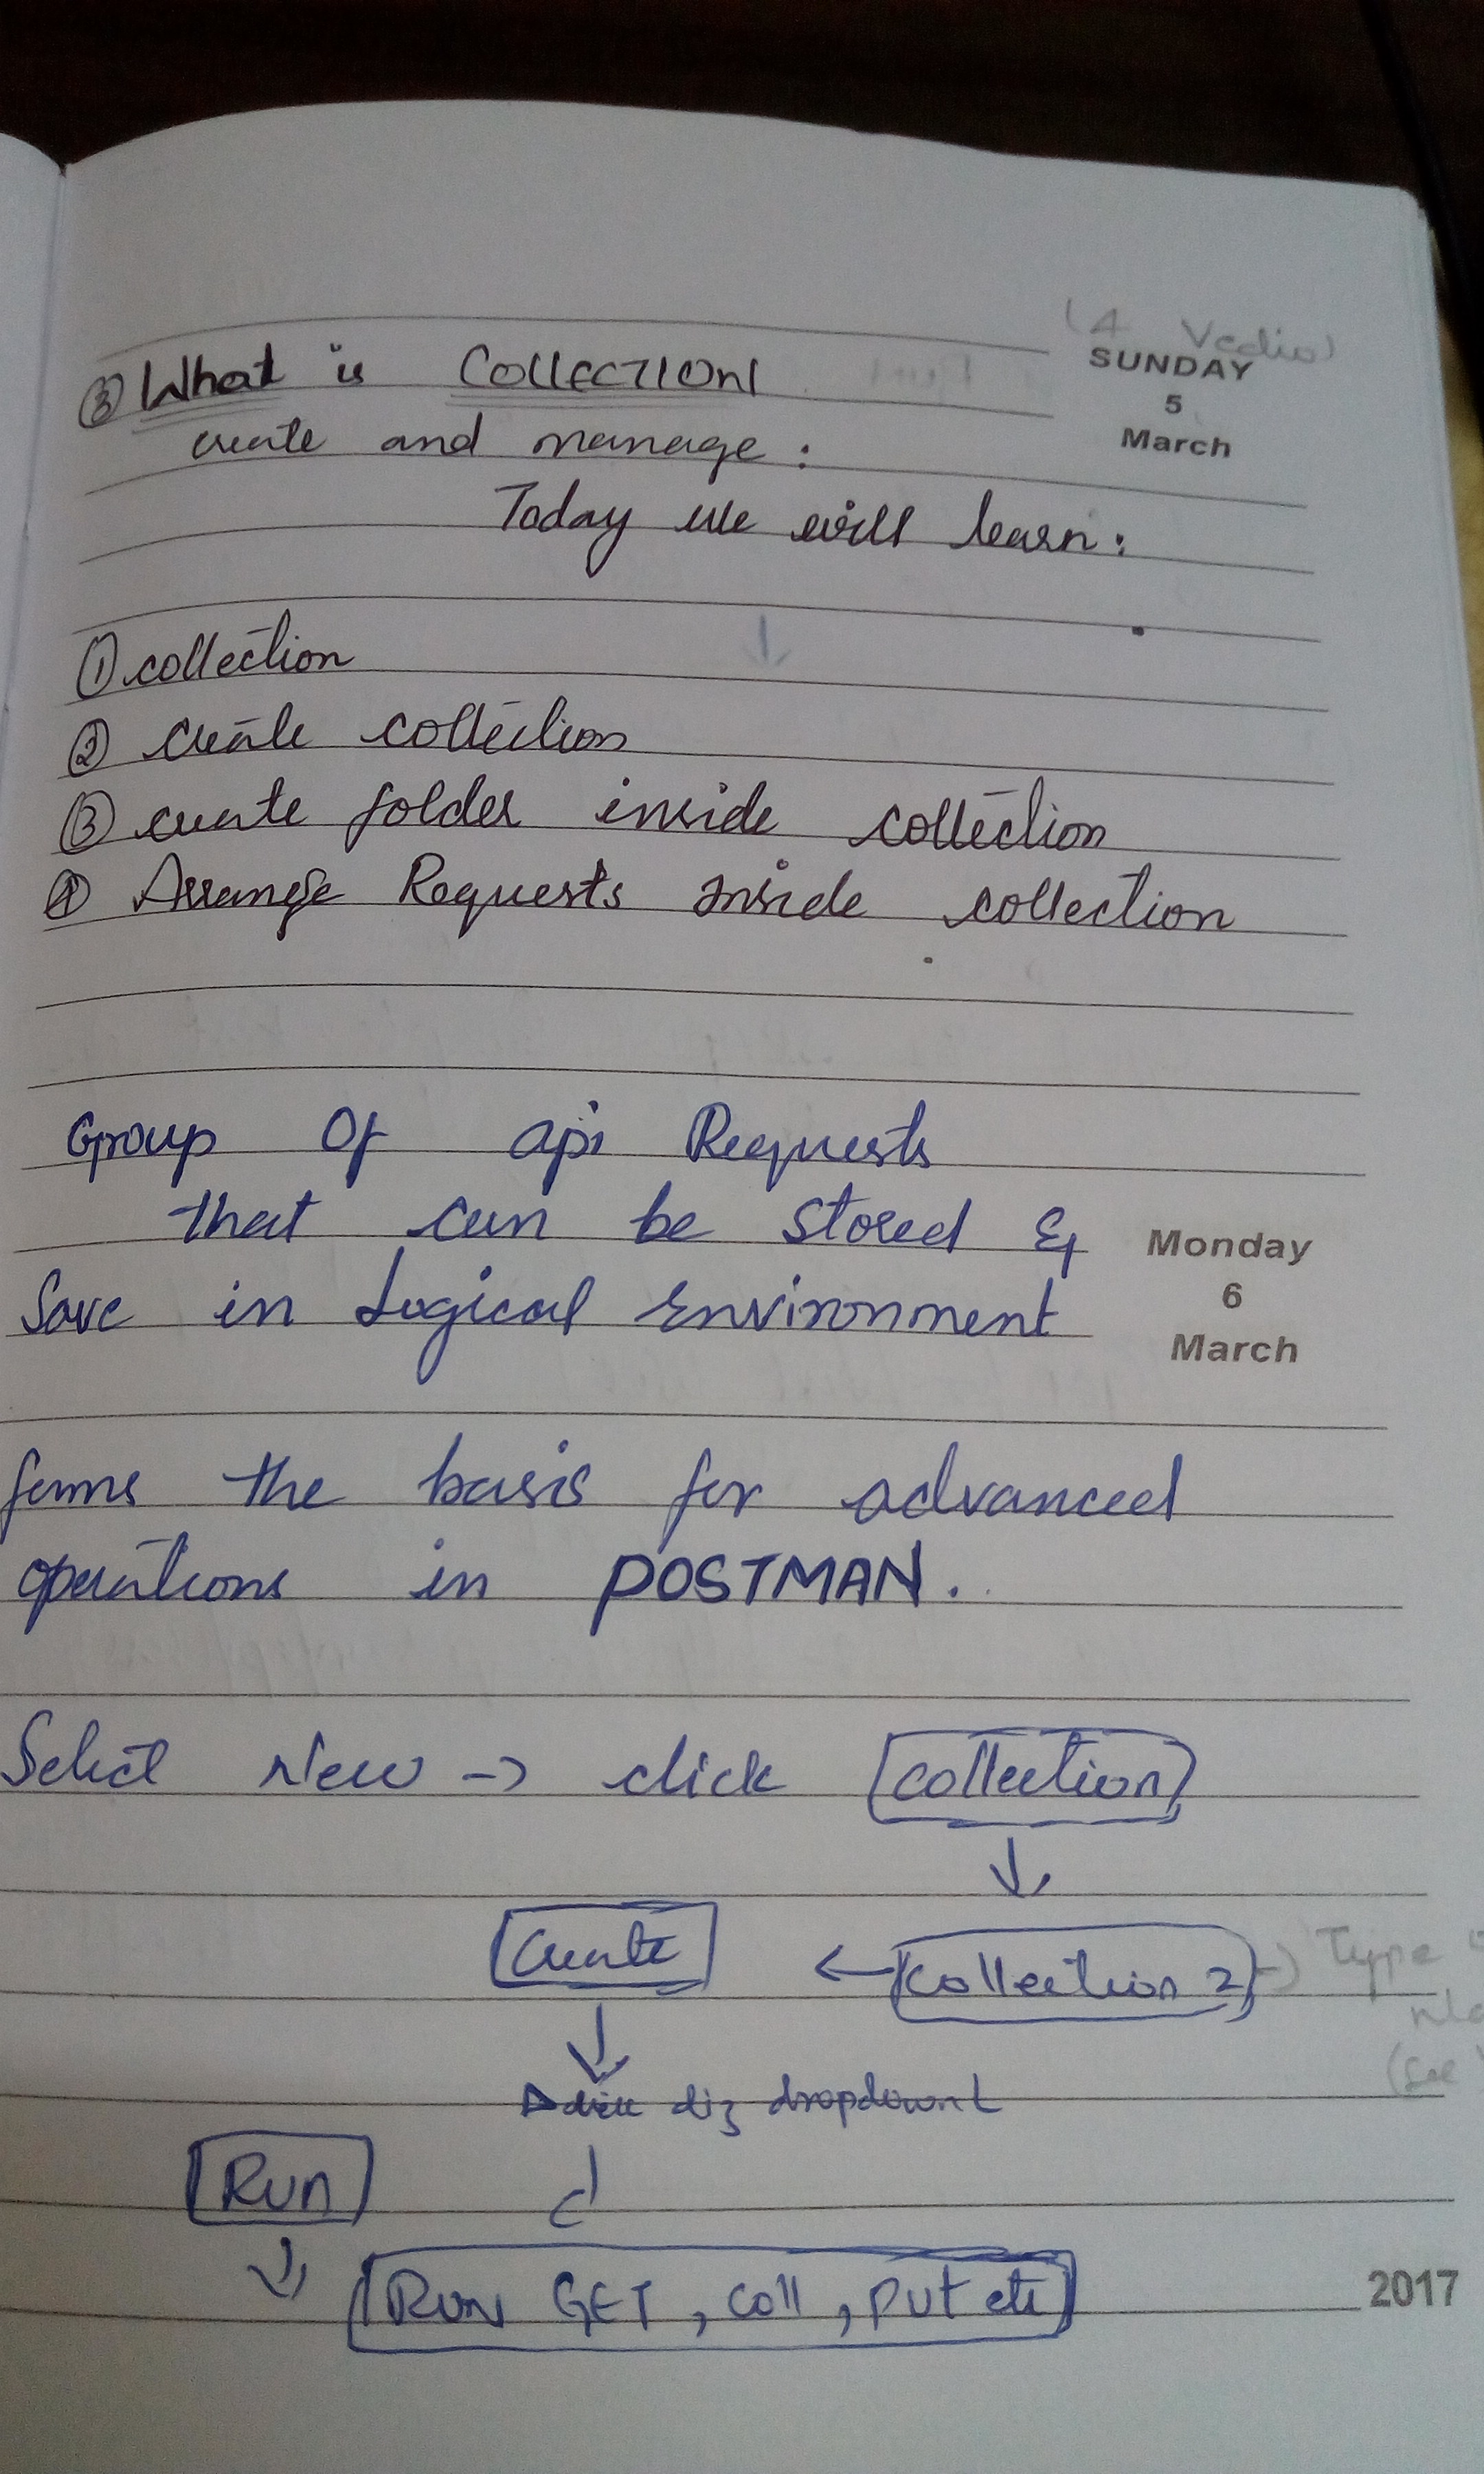 (4 Vedio)
SUNDAY
5
March
③ What is COLLECTION
create and manage :
Today we will learn :
① collection
② create collection
③ create folder inside collection
④ Arrange Requests inside collection
Group Of api Requests
that can be stored &
Save in Logical Environment
Monday
6
March
forms the basis for advanced
operations in POSTMAN.
Select New -> click collection
↓
create ← collection 2 -> Type
(See
↓
dropdown
Run
RUN GET, coll, PUT etc
2017